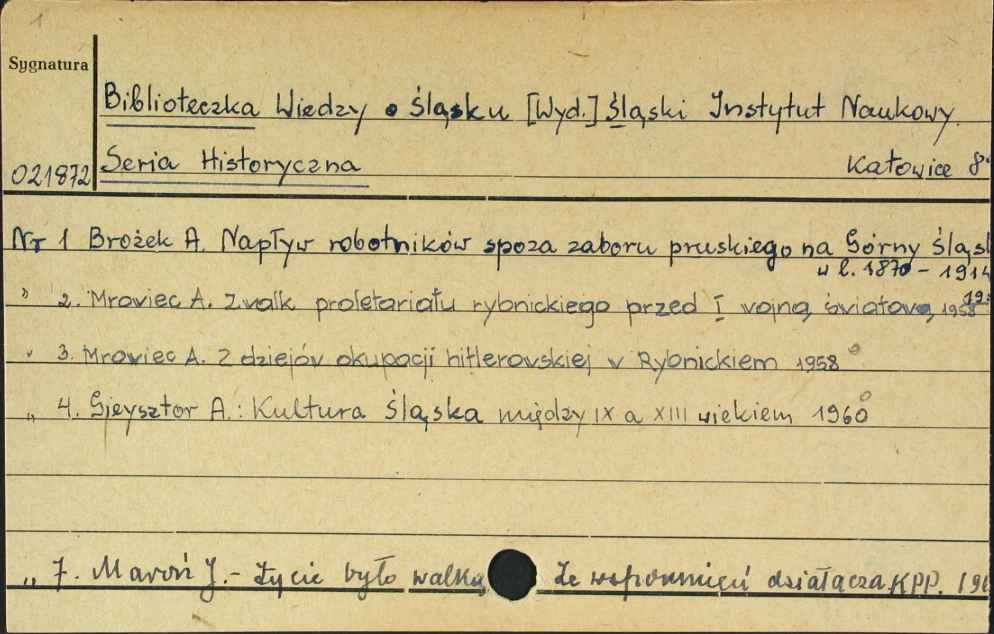 1
Sygnatura
Biblioteczka Wiedzy o Śląsku [Wyd.] Śląski Instytut Naukowy.
021872 Seria Historyczna Katowice 8°
Nr 1 Brożek A. Napływ robotników spoza zaboru pruskiego na Górny Śląs
w l. 1870-1914
19
" 2. Mrowiec A. Z walk proletariatu rybnickiego przed I wojną światową, 1958
" 3. Mrowiec A. Z dziejów okupacji hitlerowskiej w Rybnickiem 1958
" 4. Giejsztor A.: Kultura Śląska między IX a XIII wiekiem 1960
" 7. Maroń J. - Życie było walką Ze wspomnień działacza KPP. 196